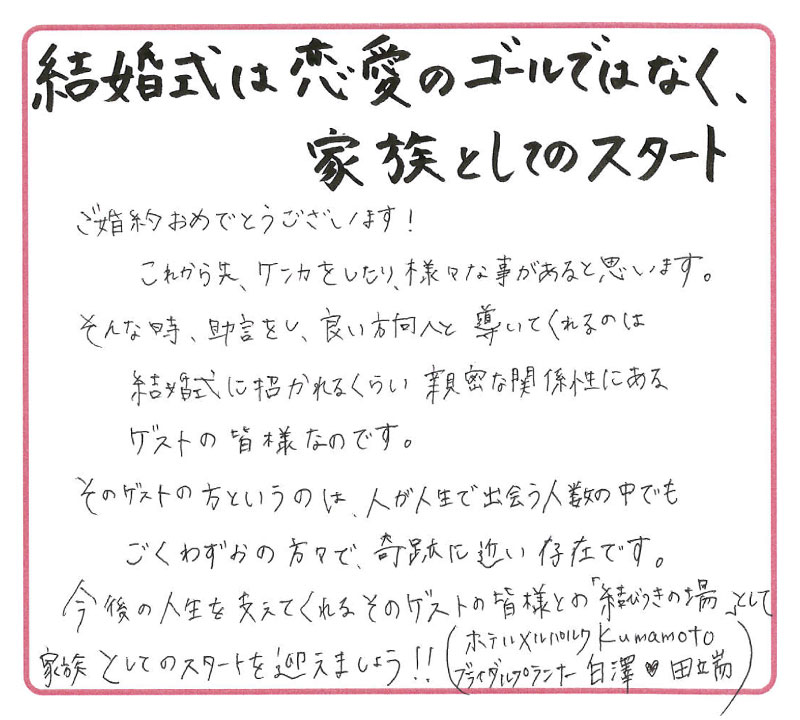 結婚式は恋愛のゴールではなく、
家族としてのスタート
ご婚約おめでとうございます!
これから先、ケンカをしたり、様々な事があると思います。
そんな時、助言をし、良い方向へと導いてくれるのは
結婚式に招かれるくらい親密な関係性にある
ゲストの皆様なのです。
そのゲストの方というのは、人が人生で出会う人数の中でも
ごくわずかの方々で、奇跡に近い存在です。
今後の人生を支えてくれるそのゲストの皆様との「結びつきの場」として
家族としてのスタートを迎えましょう!!
(ホテルメルパルクKumamoto
ブライダルプランナー 白澤♥田立嵩)